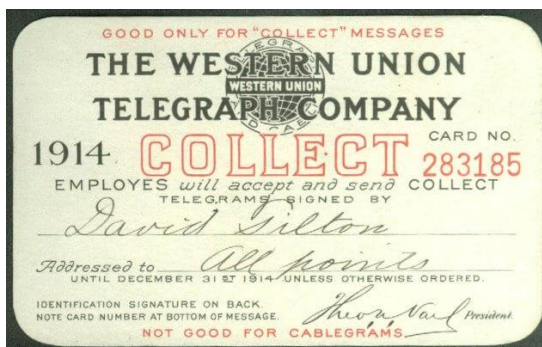 GOOD ONLY FOR "COLLECT" MESSAGES
THE WESTERN UNION
TELEGRAPH COMPANY
TELEGRAPH
WESTERN UNION
AND CABLE
1914 COLLECT CARD NO.
283185
EMPLOYES will accept and send COLLECT
TELEGRAMS SIGNED BY
David Silton
Addressed to All points
UNTIL DECEMBER 31ST 1914 UNLESS OTHERWISE ORDERED.
IDENTIFICATION SIGNATURE ON BACK.
NOTE CARD NUMBER AT BOTTOM OF MESSAGE.
Theo. N. Vail President.
NOT GOOD FOR CABLEGRAMS